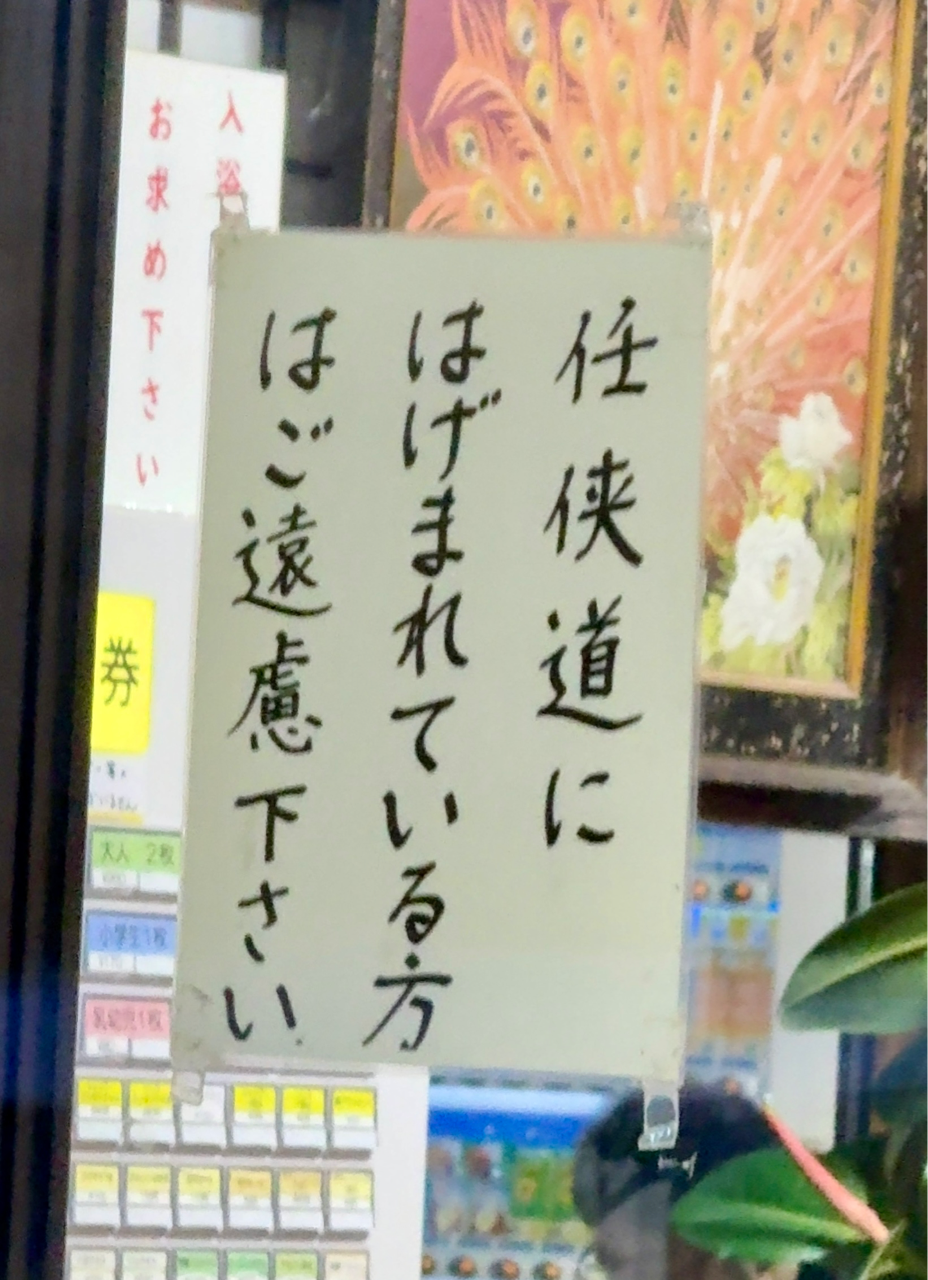 任侠道に
はげまれている方
はご遠慮下さい
入浴
お求め下さい
券
大人 2枚
小学生1枚
乳幼児1枚